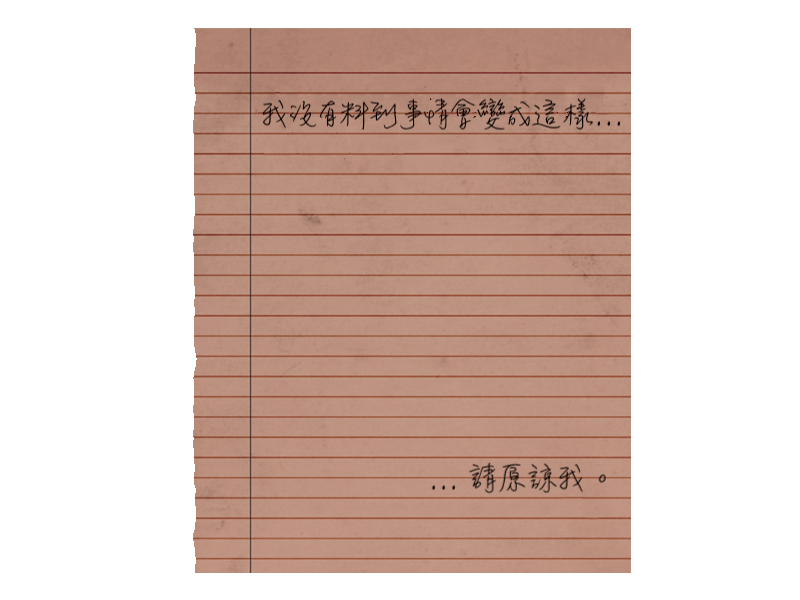 我沒有料到事情會變成這樣...
...請原諒我。